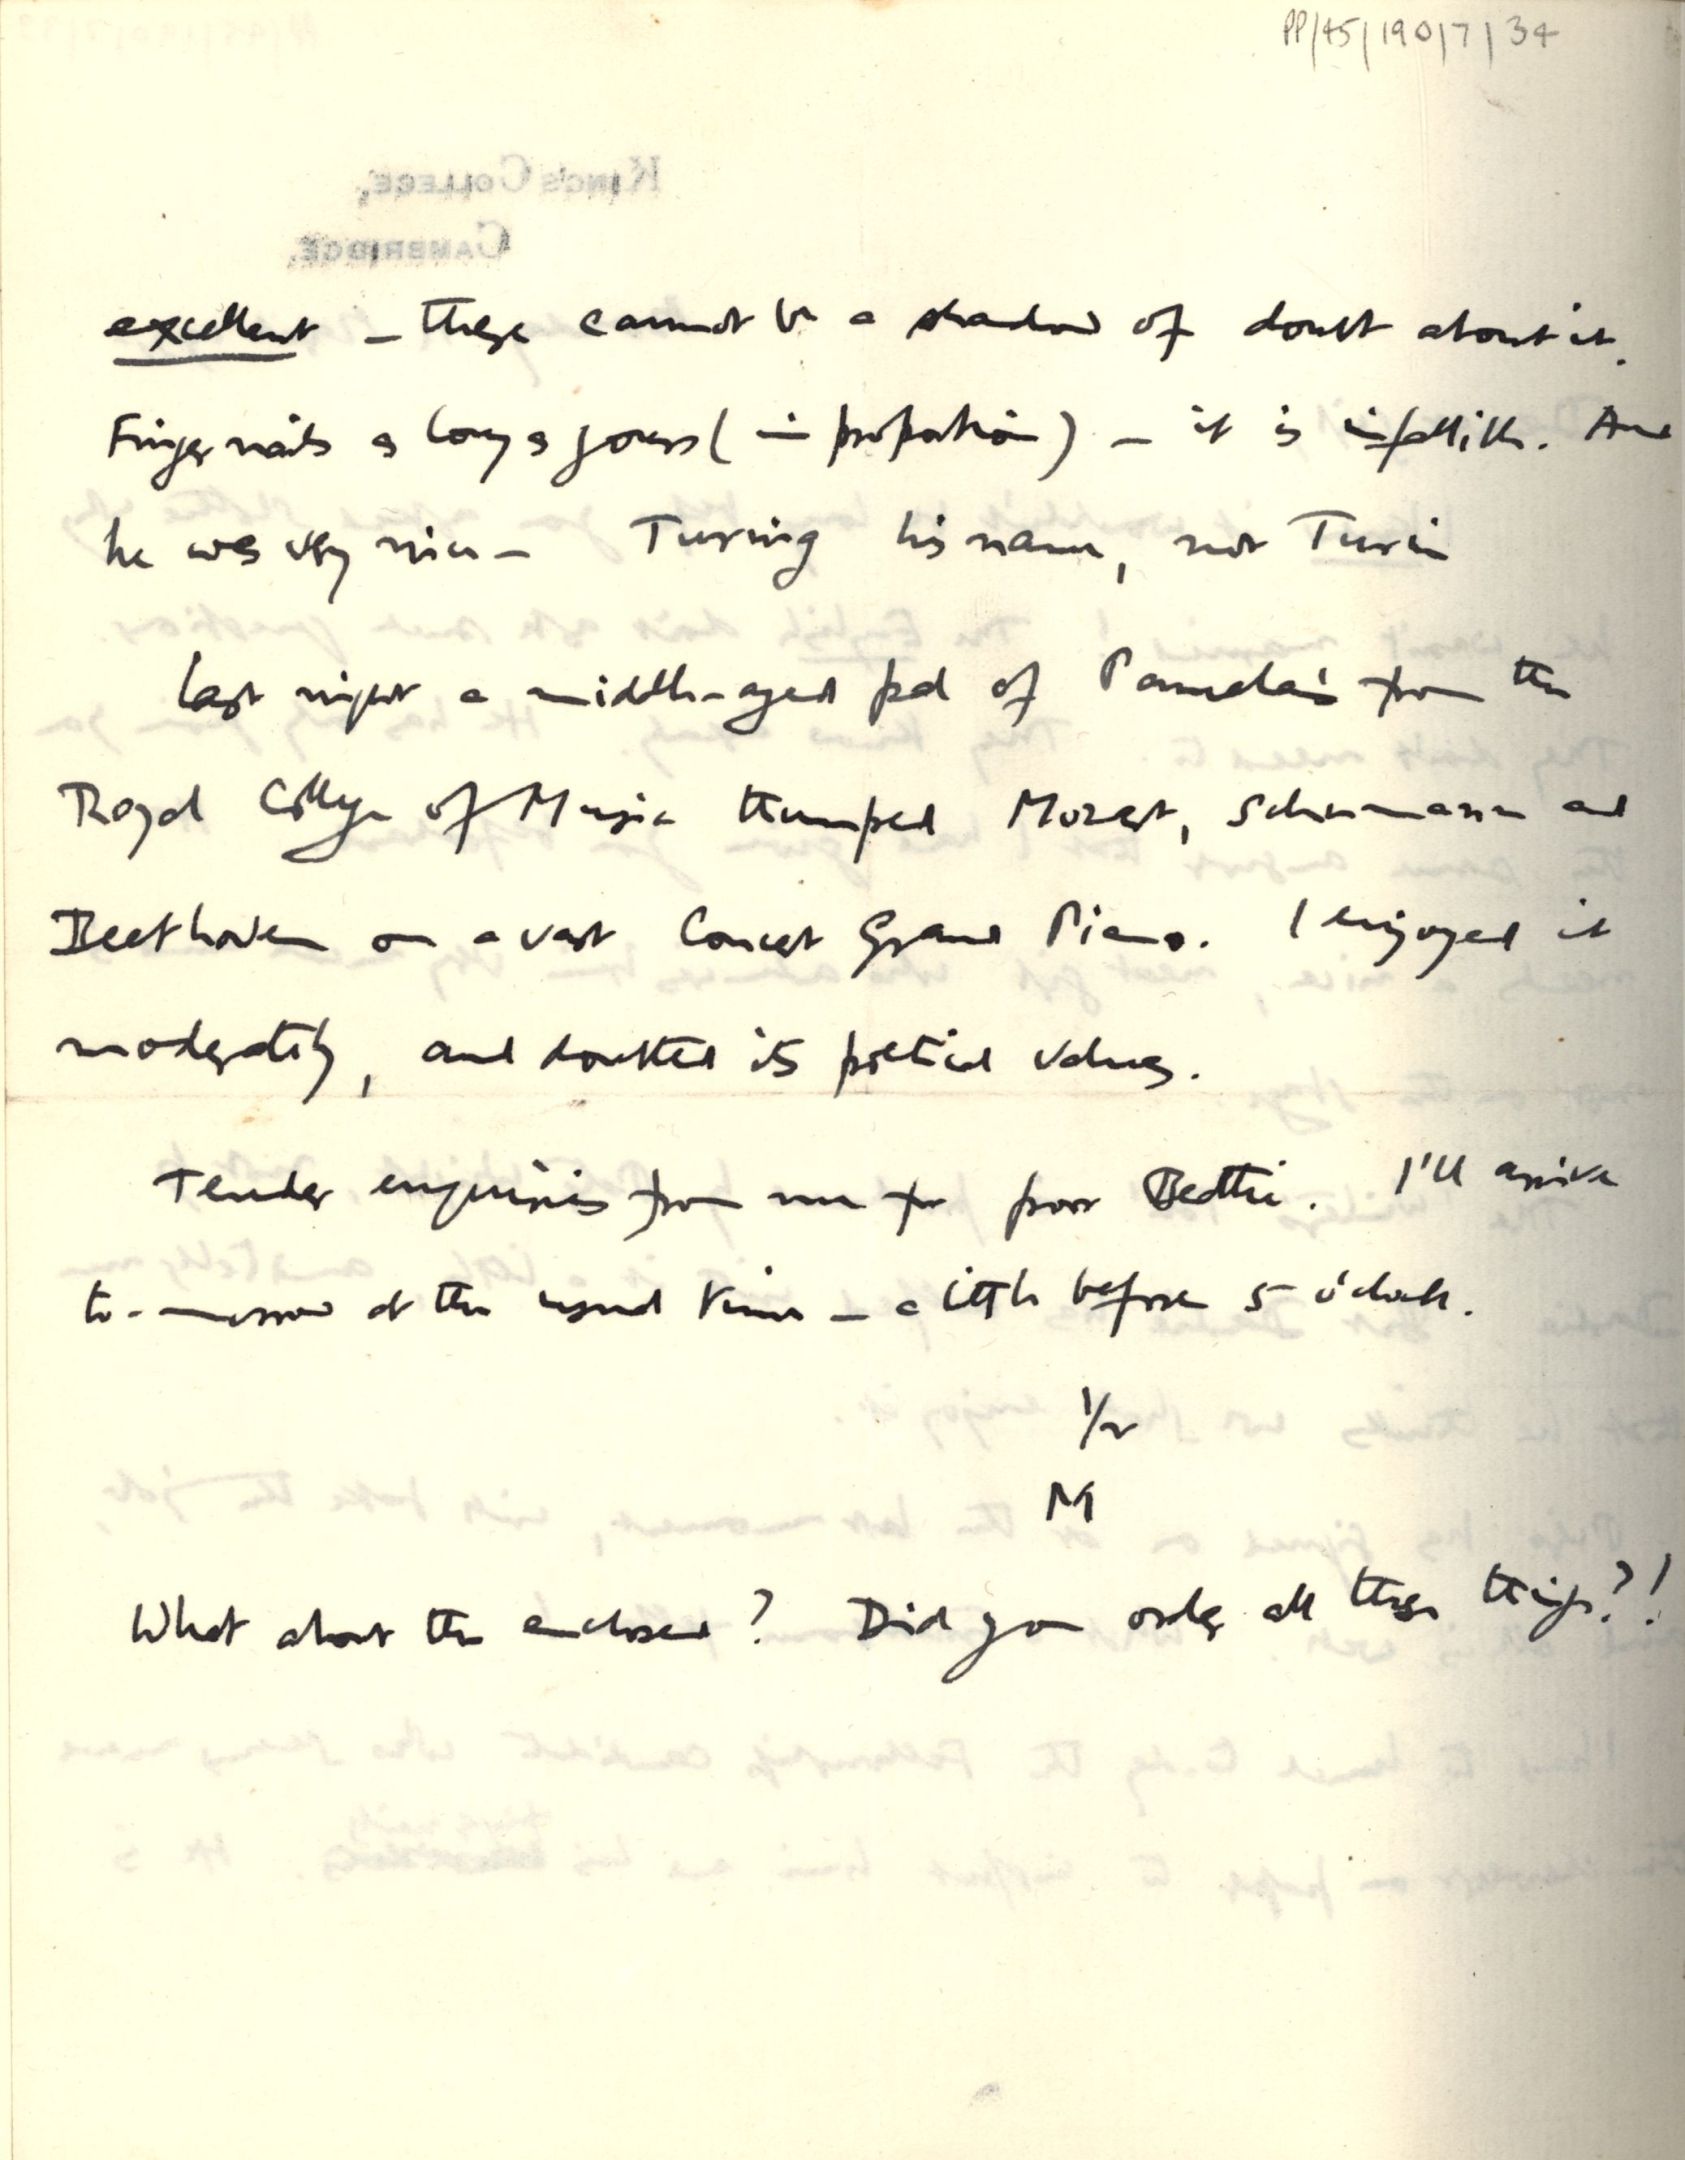 PP/45/190/7/34
KING'S COLLEGE,
CAMBRIDGE.
excellent – there cannot be a shadow of doubt about it.
Finger nails as long as yours (in proportion) – it is infallible. And
he was very nice – Turing his name, not Turin
Last night a middle-aged pal of Pamela's from the
Royal College of Music thumped Mozart, Schumann and
Beethoven on a vast Concert Grand Piano. I enjoyed it
moderately, and doubted its poetical values.
Tender enquiries from me for poor Beattie. I'll arrive
to-morrow at the usual time – a little before 5 o'clock.
M
What about the enclosed? Did you order all these things?!